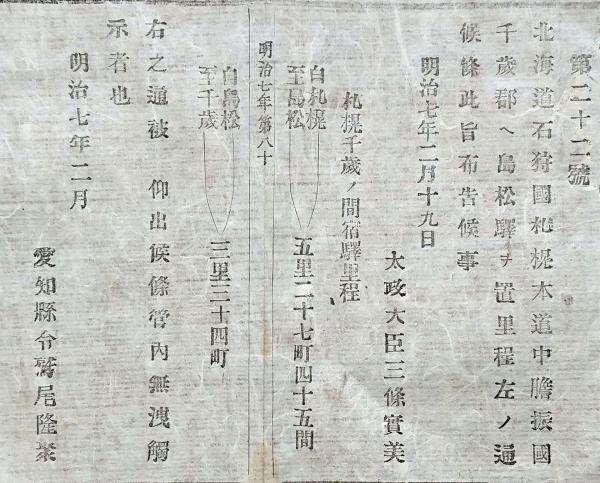 第二十二號
北海道石狩國札幌本道中膽振國
千歳郡ヘ島松驛ヲ置里程左ノ通
候條此旨布告候事
明治七年二月十九日
太政大臣三條實美
札幌千歳ノ間宿驛里程
自札幌
至島松
五里二十七町四十五間
明治七年第八十
自島松
至千歳
三里三十四町
右之通被 仰出候條管內無洩觸
示者也
明治七年二月
愛知縣令鷲尾隆聚